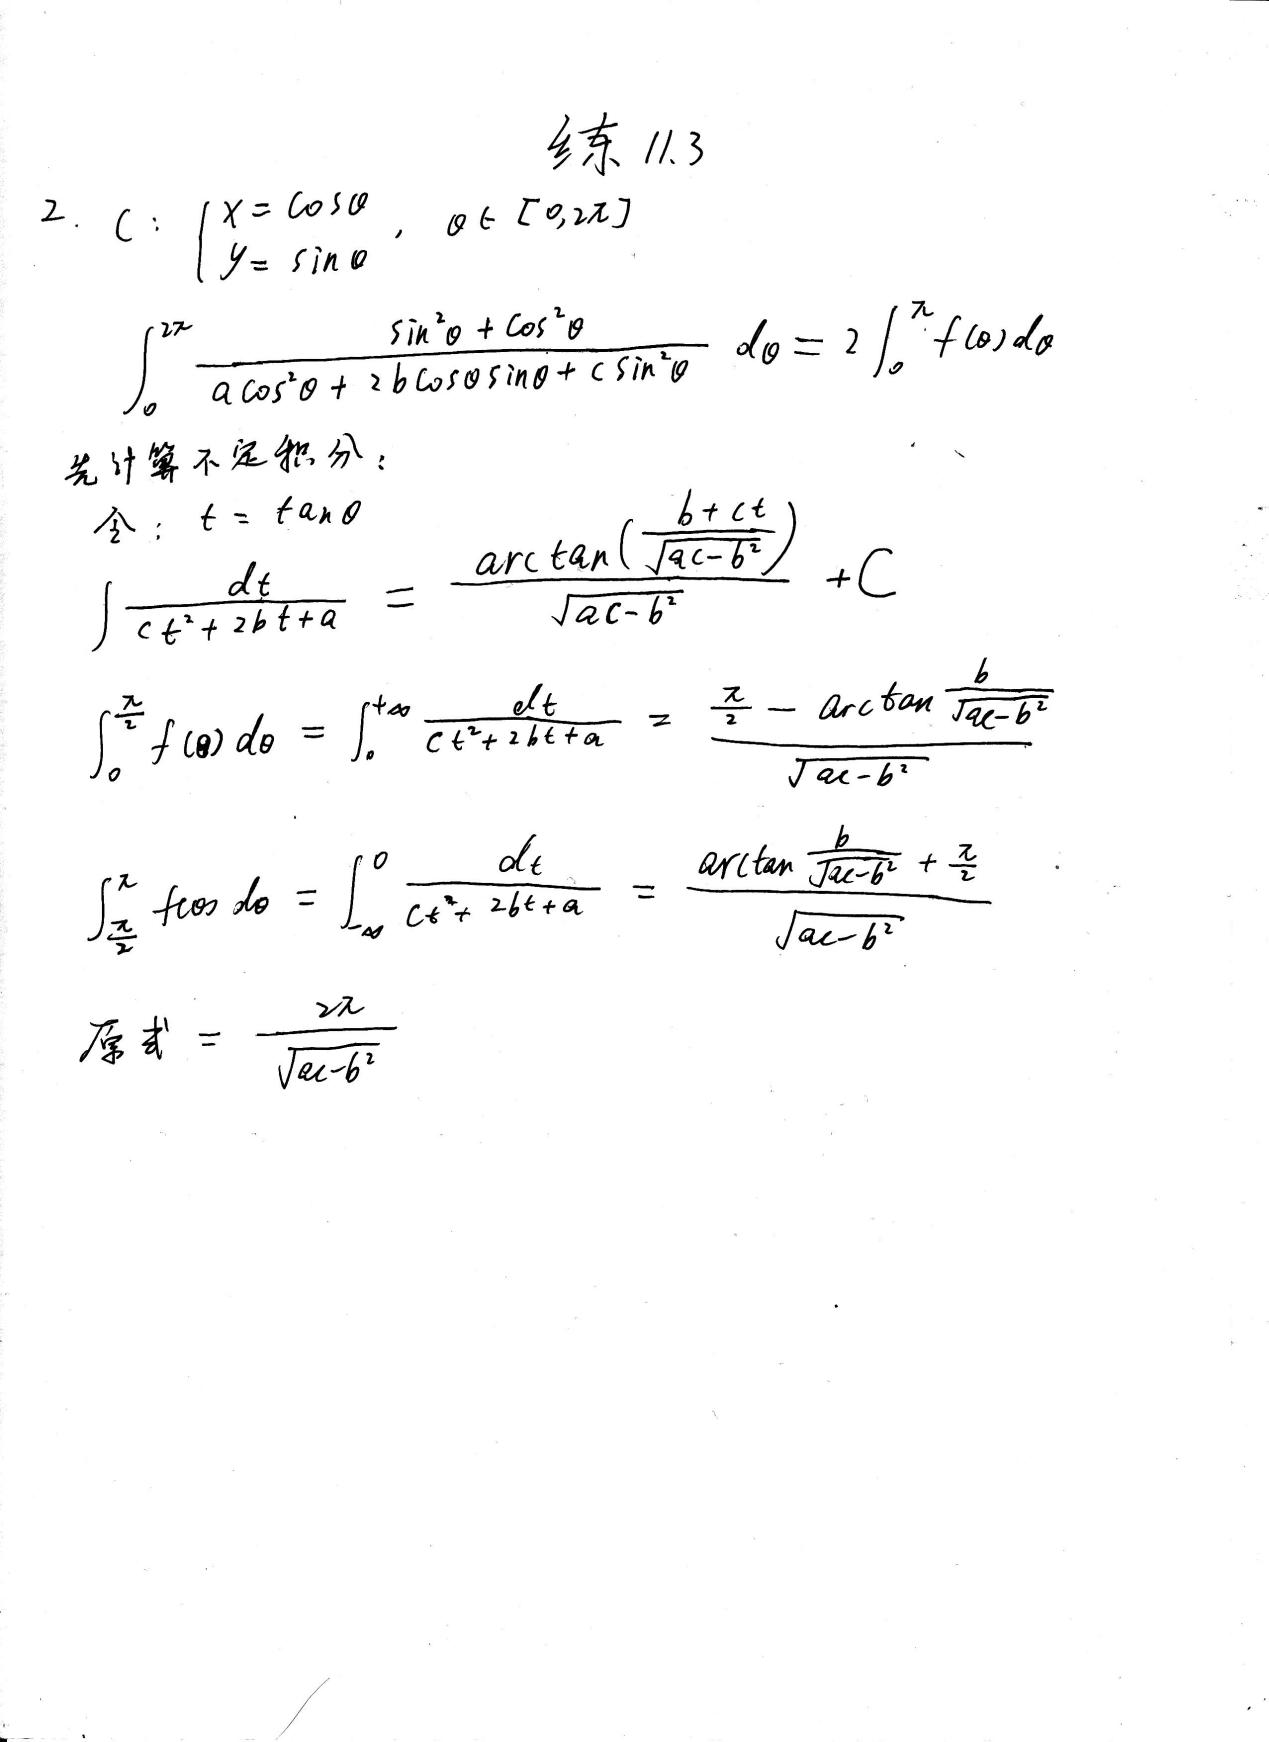 练 11.3
2. C: { x = cosθ , y = sinθ , θ∈[0,2π]
∫₀^{2π} (sin²θ + cos²θ)/(a cos²θ + 2b cosθ sinθ + c sin²θ) dθ = 2∫₀^π f(θ)dθ
先计算不定积分:
令: t = tanθ
∫ dt/(ct² + 2bt + a) = arctan((b+ct)/√(ac-b²))/√(ac-b²) + C
∫₀^{π/2} f(θ)dθ = ∫₀^{+∞} dt/(ct² + 2bt + a) = (π/2 - arctan b/√(ac-b²))/√(ac-b²)
∫_{π/2}^π f(θ)dθ = ∫_{-∞}^0 dt/(ct² + 2bt + a) = (arctan b/√(ac-b²) + π/2)/√(ac-b²)
原式 = 2π/√(ac-b²)